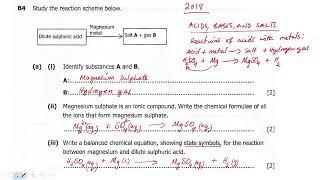 B4 Study the reaction scheme below.
2018
Dilute sulphuric acid
Magnesium metal
Salt A + gas B
ACIDS, BASES, AND SALTS
Reactions of acids with metals:
Acid + metal → Salt + Hydrogen gas
H2SO4 + Mg → MgSO4 + H2
(a) (i) Identify substances A and B.
A Magnesium sulphate
B Hydrogen gas [2]
(ii) Magnesium sulphate is an ionic compound. Write the chemical formulae of all
the ions that form magnesium sulphate.
Mg2+(aq) + SO42-(aq) → MgSO4(aq) [2]
(iii) Write a balanced chemical equation, showing state symbols, for the reaction
between magnesium and dilute sulphuric acid.
H2SO4(aq) + Mg(s) → MgSO4(aq) + H2(g) [2]